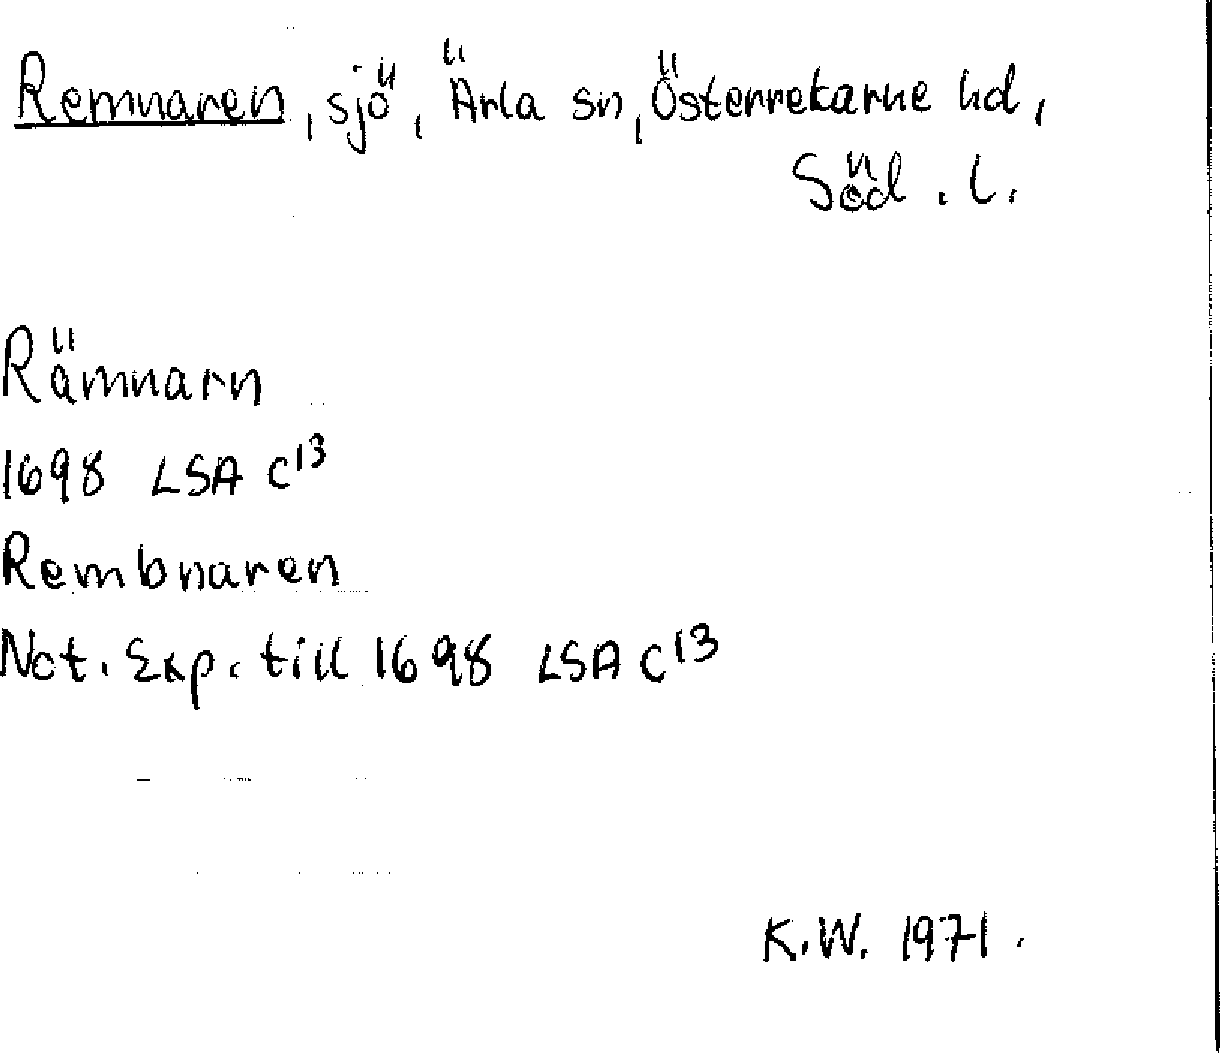 Remnaren, sjö, Ärla sn, Österrekarne hd,
Söd. l.
Rämnarn
1698 LSA C¹³
Rembnaren
Not. Exp. till 1698 LSA C¹³
K.W. 1971.